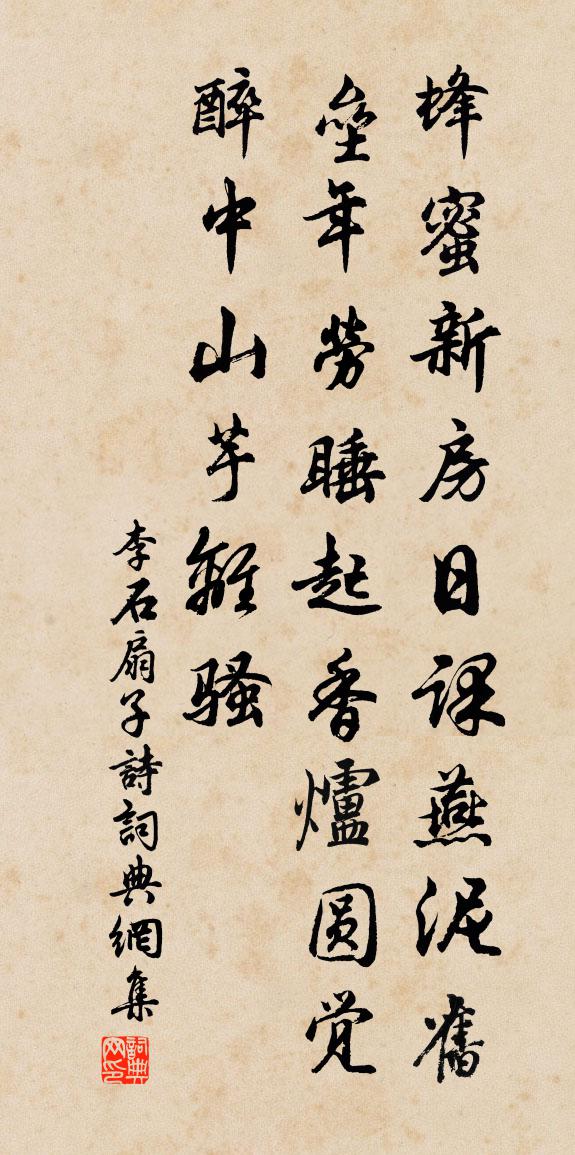 蜂蜜新房日课燕泥舊
垒年勞睡起香爐圆觉
醉中山芋離骚
李石扇子詩詞典網集
詞典网印